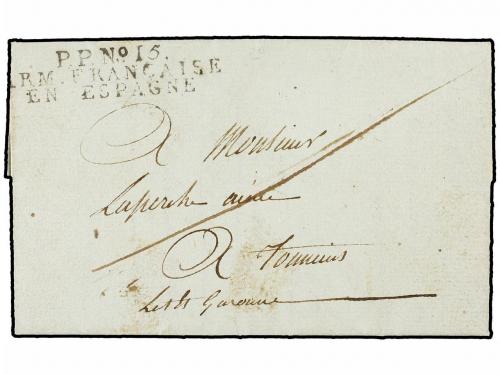 P.P. No 15.
ARM. FRANÇAISE
EN ESPAGNE
A Monsieur
Laperche ainé
A Tonneins
Lot & Garonne